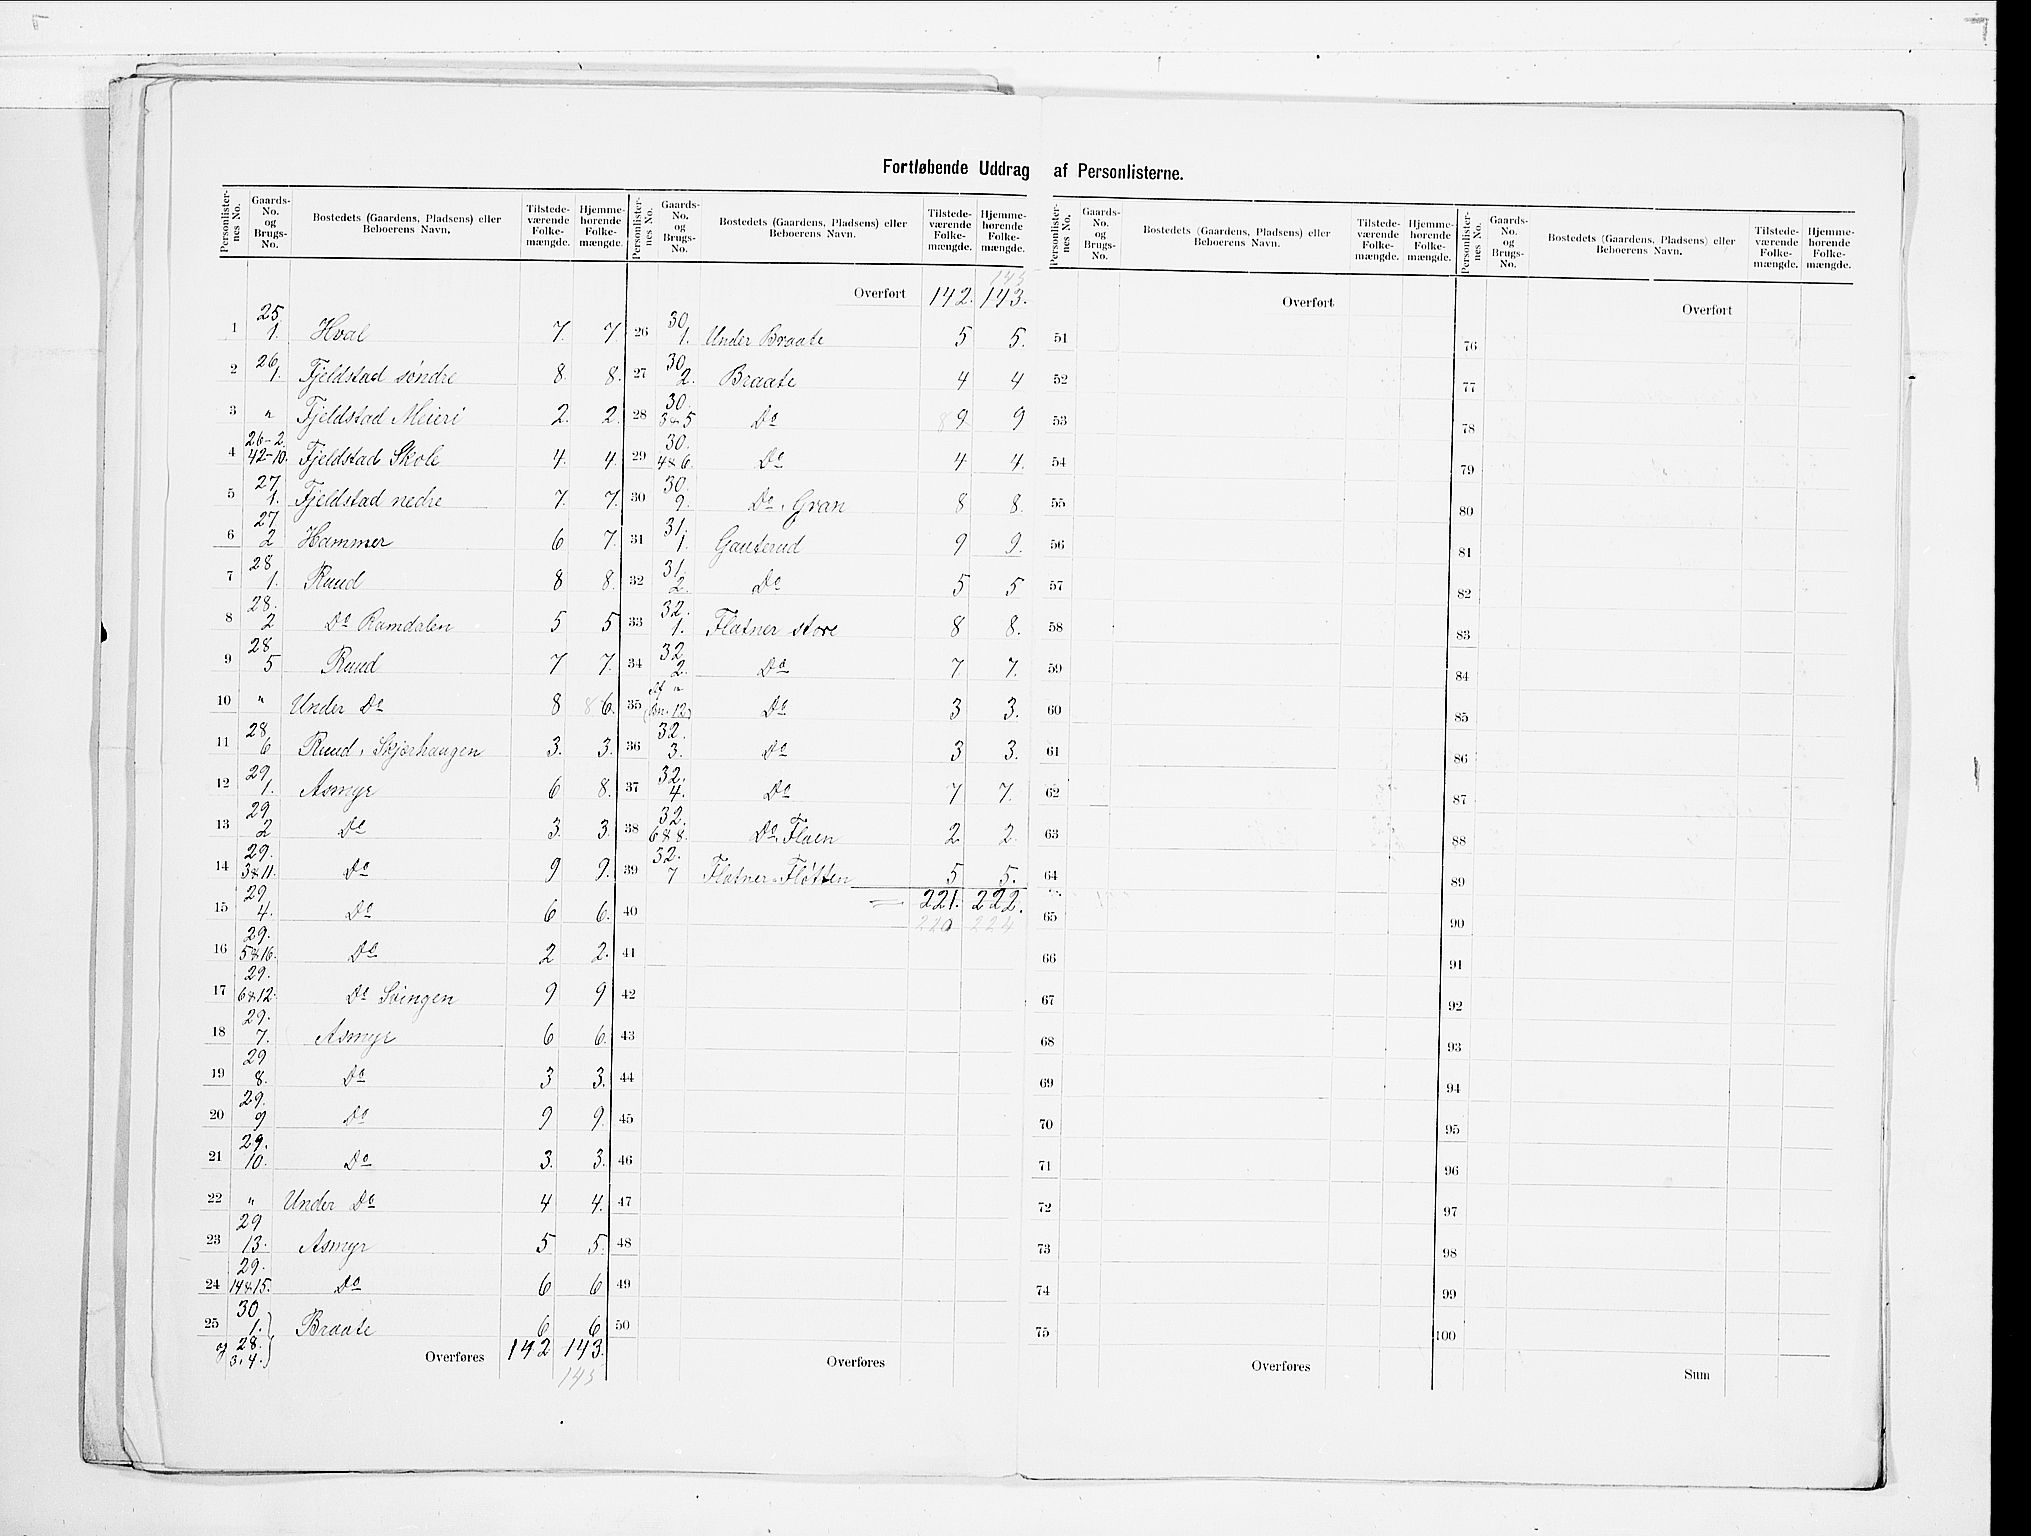 Fortløbende Uddrag af Personlisterne.
Personlister-nes No. Gaards-No. og Brugs-No. Bostedets (Gaardens, Pladsens) eller Beboerens Navn. Tilstede-værende Folke-mængde. Hjemme-hørende Folke-mængde.
1 25. 1. Hval 7. 7.
2 26 1. Fjeldstad søndre 8. 8.
3 " Fjeldstad Meieri 2. 2.
4 26-2. 42-10. Fjeldstad Skole 4. 4.
5 27 1. Fjeldstad nedre 7. 7.
6 27 2 Hammer 6 7.
7 28 1. Ruud 8 8.
8 28. 2 Do Ramdalen 5 5
9 28 5 Ruud 7 7.
10 " Under Do 8 8 6.
11 28 6 Ruud, Skjørhaugen 3. 3.
12 29 1. Asmyr 6 8.
13 29 2 Do 3. 3.
14 29. 3&11. Do 9 9.
15 29 4. Do 6 6.
16 29. 5&16. Do 2 2.
17 29. 6&12. Do Svingen 9 9
18 29. 7. Asmyr 6 6.
19 29 8. Do 3 3.
20 29. 9 Do 9 9.
21 29. 10. Do 3. 3.
22 " Under Do 4 4.
23 29 13. Asmyr 5 5.
24 29. 14&15. Do 6 6
25 30 1. Braate 6 6
og 28. 3,4. Overføres 142 143.
145
Personlister-nes No. Gaards-No. og Brugs-No. Bostedets (Gaardens, Pladsens) eller Beboerens Navn. Tilstede-værende Folke-mængde. Hjemme-hørende Folke-mængde.
145
Overført 142. 143.
26 30 1. Under Braate 5 5.
27 30 2. Braate 4 4
28 30. 3&5 Do 8 9 9
29 30. 4&6. Do 4 4.
30 30. 9. Do, Gran 8 8.
31 31. 1. Gauterud 9 9.
32 31. 2. Do 5 5
33 32. 1. Flatner store 8 8.
34 32 2. Do 7 7.
35 Af " (bn. 12) Do 3 3.
36 32. 3. Do 3 3.
37 32. 4. Do 7 7.
38 32. 6&8. Do, Flaen 2 2.
39 32. 7 Flatner Fløtten 5 5.
40 = 221. 222.
220 224
41
42
43
44
45
46
47
48
49
50
Overføres
Personlister-nes No. Gaards-No. og Brugs-No. Bostedets (Gaardens, Pladsens) eller Beboerens Navn. Tilstede-værende Folke-mængde. Hjemme-hørende Folke-mængde.
Overført
51
52
53
54
55
56
57
58
59
60
61
62
63
64
65
66
67
68
69
70
71
72
73
74
75
Overføres
Personlister-nes No. Gaards-No. og Brugs-No. Bostedets (Gaardens, Pladsens) eller Beboerens Navn. Tilstede-værende Folke-mængde. Hjemme-hørende Folke-mængde.
Overført
76
77
78
79
80
81
82
83
84
85
86
87
88
89
90
91
92
93
94
95
96
97
98
99
100
Sum